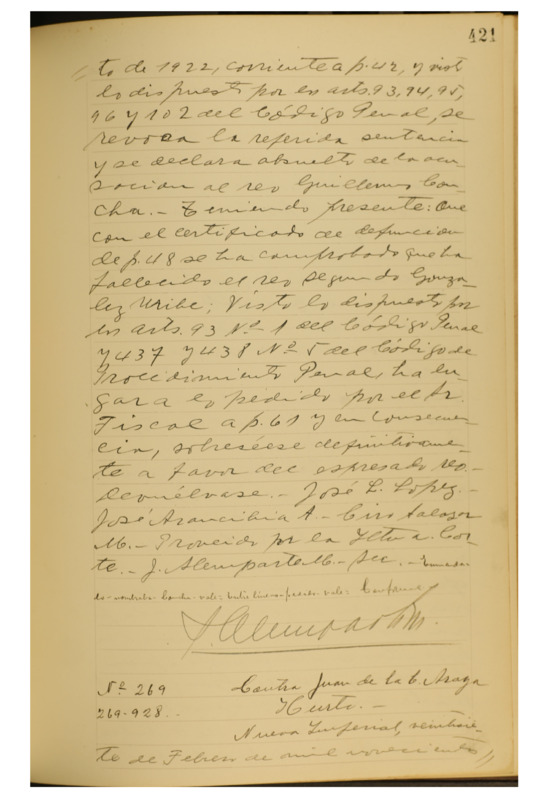 421
to de 1922, corriente a p. 42, y visto
lo dispuesto por los arts. 93, 94, 95,
96 y 102 del Código Penal, se
revoca la referida sentencia
y se declara absuelto de la acu-
sacion al reo Guillermo Con-
cha.- Teniendo presente: Que
con el certificado de defuncion
de p. 48 se ha comprobado que ha
fallecido el reo Segundo Gonza-
lez Uribe; Visto lo dispuesto por
los arts. 93 Nº 1 del Código Penal
y 437 y 438 Nº 5 del Código de
Procedimiento Penal, ha lu-
gar a lo pedido por el Sr.
Fiscal a p. 61 y en consecuen-
cia, sobreséese definitivamen-
te a favor del espresado reo.-
Devuélvase.- José L. López.-
José Arancibia A.- Ciro Salazar
M.- Proveido por la Iltma. Cor-
te.- J. Alemparte M.- Sec.-
vale: Conforme
J. Alemparte M.
Nº 269
269-928.-
Contra Juan de la C. Araya
Hurto.-
Nueva Imperial, veintisie-
te de Febrero de mil novecientos